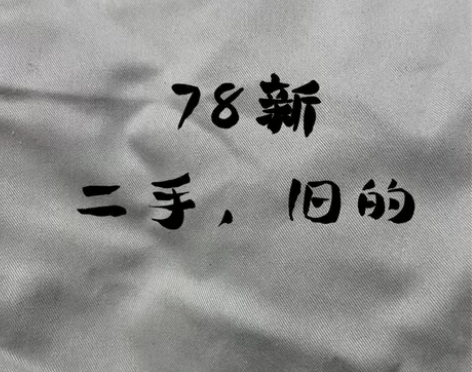 78新
二手，旧的